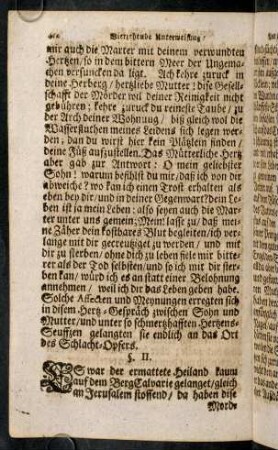 Vierzehende Unterweisung /
mir auch die Marter mit deinem verwundten
Hertzen / so in dem bittern Meer der Ungema-
chen versuncken da ligt. Ach kehre zuruck in
deine Herberg / hertzliebe Mutter! dise Gesell-
schafft der Mörder wil deiner Reinigkeit nicht
gebühren; kehre zuruck du reineste Taube / zu
der Arch deiner Wohnung / biß gleich wol die
Wasserfluthen meines Leidens sich legen wer-
den, dan du wirst hier kein Plätzlein finden /
deine Füß aufzustellen. Das Mütterliche Hertz
aber gab zur Antwort: O mein geliebster
Sohn! warum befihlst du mir / daß ich von dir
abweiche? wo kan ich einen Trost erhalten als
eben bey dir / und in deiner Gegenwart? dein Le-
ben ist ja mein Leben: also seyen auch die Mar-
ter unter uns gemein: Mein! lasse zu / daß mei-
ne Zäher dein kostbares Blut begleiten / ich ver-
lange mit dir gecreutziget zu werden / und mit
dir zu sterben / ohne dich zu leben fiele mir bitte-
rer als der Tod selbsten / und so ich mit dir ster-
ben kan / würd ich es an statt einer Belohnung
annehmen / weil ich dir das Leben geben habe.
Solche Affecten und Meynungen erregten sich
in disem Hertz-Gespräch zwischen Sohn und
Mutter / und unter so schmertzhafften Hertzens-
Seufftzen gelangten sie endlich an das Ort
des Schlacht-Opfers.
§. II.
ES war der ermattete Heiland kaum
auf dem Berg Calvarie gelanget / gleich
an Jerusalem stossend / da haben dise
Mord-